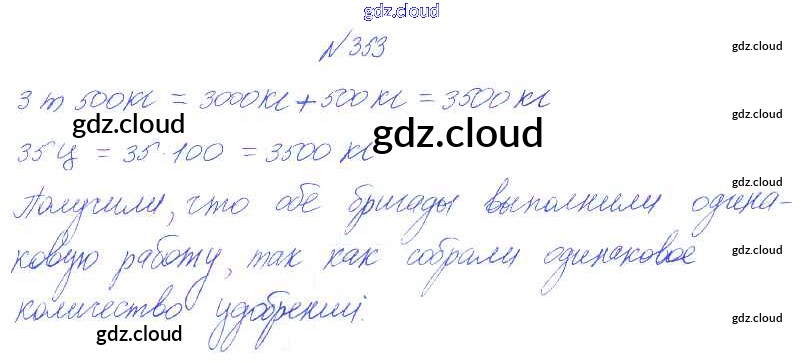 gdz.cloud
№353
gdz.cloud
3 т 500 кг = 3000 кг + 500 кг = 3500 кг
gdz.cloud
gdz.cloud
35 ц = 35 · 100 = 3500 кг
gdz.cloud
Получили, что обе бригады выполнили одина-
ковую работу, так как собрали одинаковое
gdz.cloud
количество удобрений.
gdz.cloud
gdz.cloud